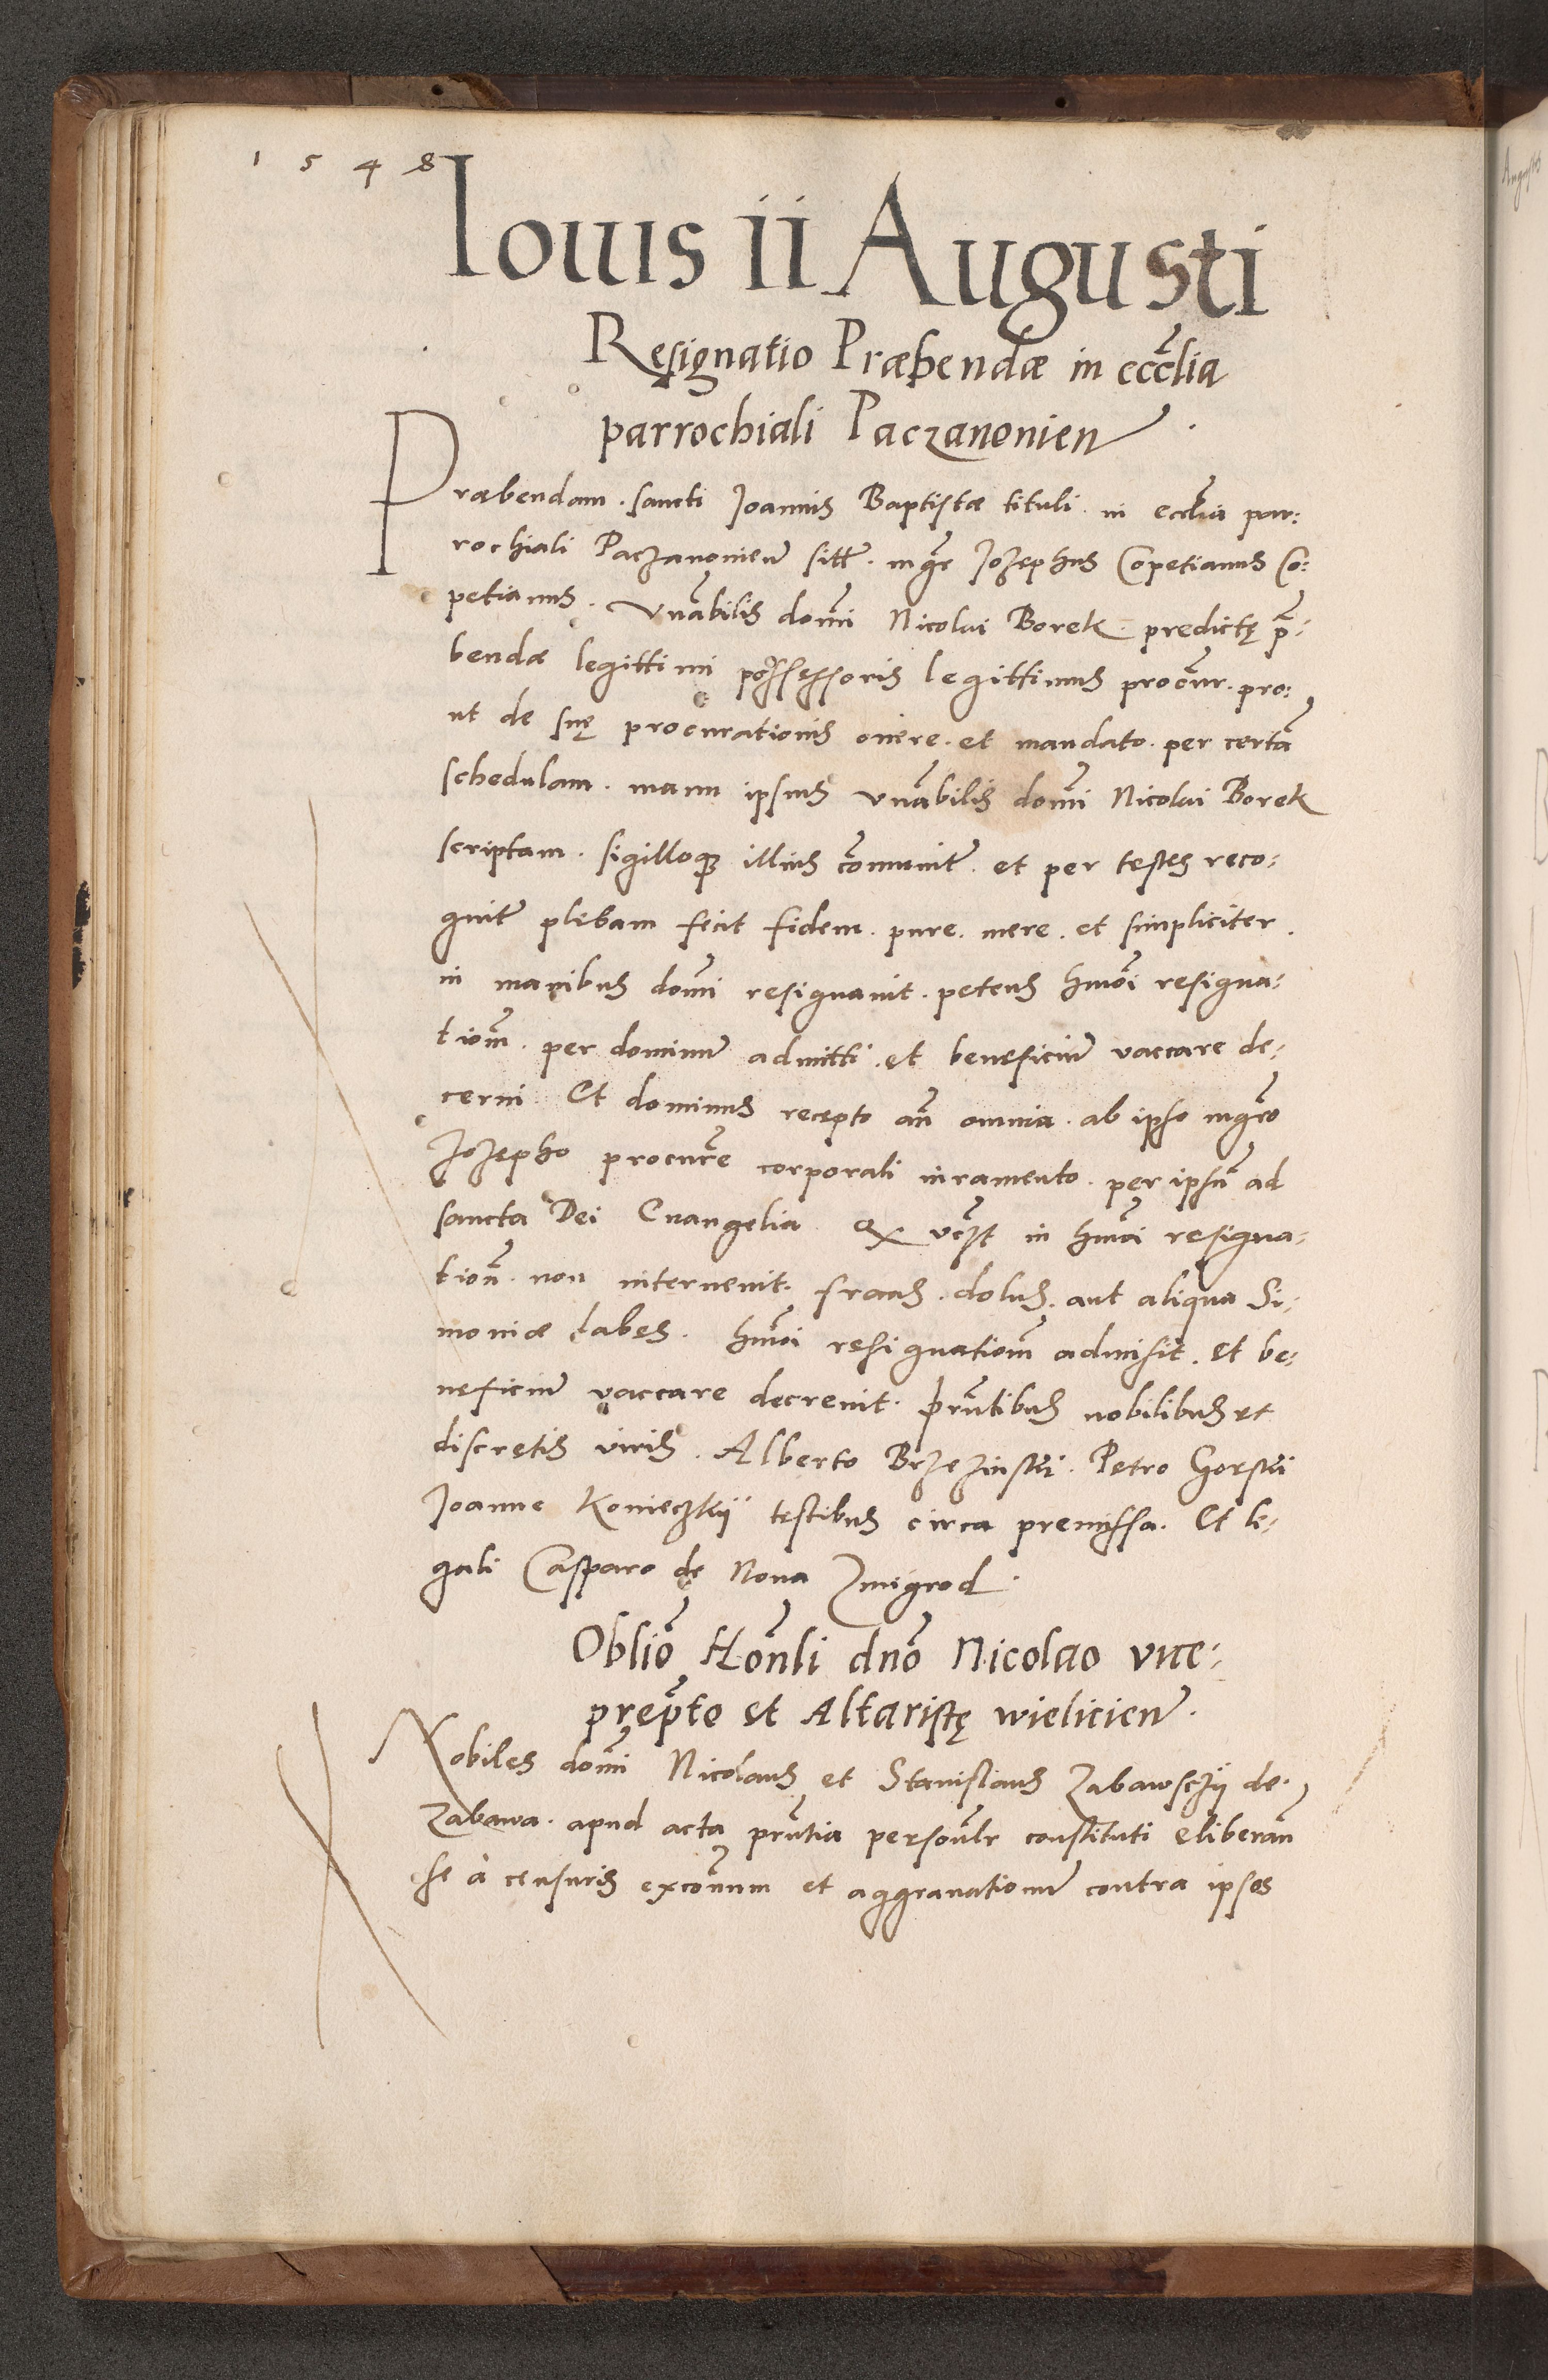 1548
Iouis ii Augusti
Resignatio Præbendæ in eccl̃ia
parrochiali Paczanonien
Præbendam. sancti Joannis Baptistæ tituli. in eccl̃ia par:
rochiali Paczanonien̄ sitt̄. mḡr Jozephus Copetianus Co:
petianus. Vnãbilis domĩ Nicolai Borek. predictę p̃:
bendæ legittimi possessoris legittimus procũr. pro:
ut de suę procurationis onere. et mandato. per certã
schedulam. manu ipsius vnãbilis domĩ Nicolai Borek
scriptam. sigilloqȝ illius cõmunit̄. et per testes reco:
gnit̄ plebam fecit fidem. pure. mere. et simpliciter.
in manibus domĩ resignauit. petens hmõi resigna:
tionẽ. per dominũ admitti. et beneficiũ vaccare de:
cerni. Et dominus recepto añ omnia. ab ipso mgr̃o
Jozepho procur̃e corporali iuramento. per ipsũ ad
sancta Dei Euangelia. Qx vc̃zt in hmõi resigna:
tionẽ. non interuenit. fraus. dolus. aut aliqua Si:
moniæ labes. hmõi resignationẽ admisit. Et be:
neficiũ vaccare decreuit. pr̃ntibus nobilibus et
discretis viris. Alberto Brzezinski. Petro Gorski
Joanne Konieczkÿ testibus circa premissa. Et li:
gali Casparo de Noua Zmigrod.
Obliõ Hoñli dnõ Nicolao vice:
prep̃to et Altaristę wielicien̄.
Nobiles domĩ Nicolaus et Stanislaus Zabawsczÿ de.
Zabawa. apud acta pr̃ntia persoñlr constituti eliberañ
se a censuris excõnum et aggrauationũ contra ipsos